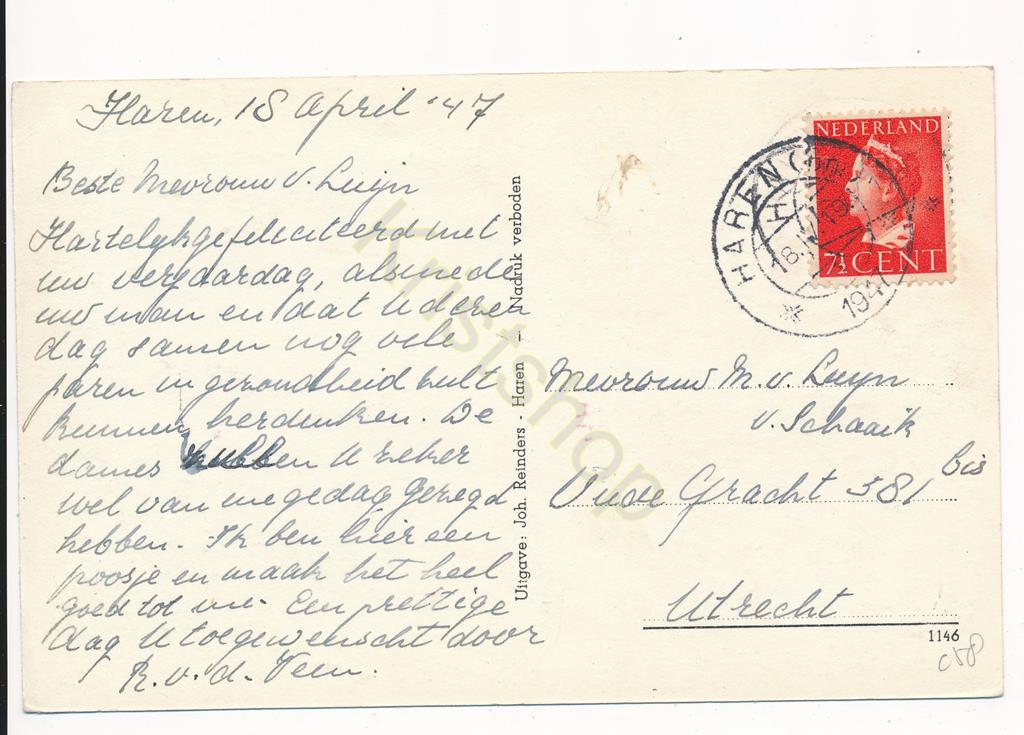 Haren, 18 April '47
Beste Mevrouw v. Luijn
Hartelijkgefeliciteerd met
uw verjaardag, alsmede
uw man en dat U deren
dag samen nog vele
jaren in gezondheid zult
kunnen herdenken. De
dames hebben U zeker
wel van me gedag gezegd
hebben. Ik ben hier een
poosje en maak het heel
goed tot nu. Een prettige
dag U toegewenscht door
R. v. d. Veen.
Uitgave: Joh. Reinders - Haren - Nadruk verboden
NEDERLAND
7½ CENT
HAREN
18
1947
Mevrouw M. v. Luyn
v. Schaaik
Oude Gracht 381 bis
Utrecht
1146
c58
Kristshop